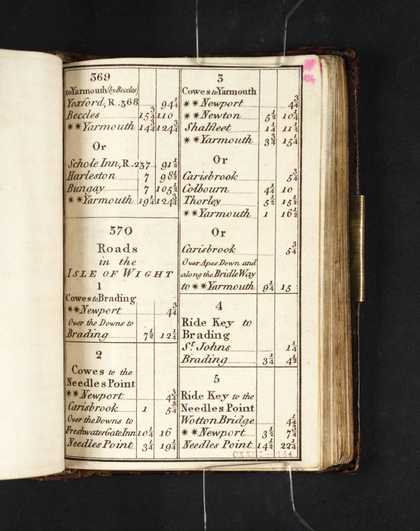 369
to Yarmouth (by Beccles)
Yoxford, R. 368 94¼
Beccles 15¾ 110
**Yarmouth 14¾ 124¾
Or
Schole Inn, R. 237 91½
Harleston 7 98½
Bungay 7 105½
**Yarmouth 19¼ 124¾
370
Roads
in the
ISLE OF WIGHT
1
Cowes to Brading
**Newport 4¾
Over the Downs to
Brading 7½ 12¼
2
Cowes to the
Needles Point
**Newport 4¾
Carisbrook 1 5¾
Over the Downs to
Freshwater Gate Inn 10¼ 16
Needles Point 3¼ 19¼
3
Cowes to Yarmouth
**Newport 4¾
**Newton 5½ 10¼
Shalfleet 1¼ 11½
**Yarmouth 3¾ 15¼
Or
Carisbrook 5¾
Colbourn 4¼ 10
Thorley 5½ 15½
**Yarmouth 1 16½
Or
Carisbrook 5¾
Over Apes Down and
along the Bridle Way
to **Yarmouth 9¼ 15
4
Ride Key to
Brading
St. Johns 1¼
Brading 3¼ 4½
5
Ride Key to the
Needles Point
Wotton Bridge 4¼
**Newport 3½ 7¾
Needles Point 14½ 22¼